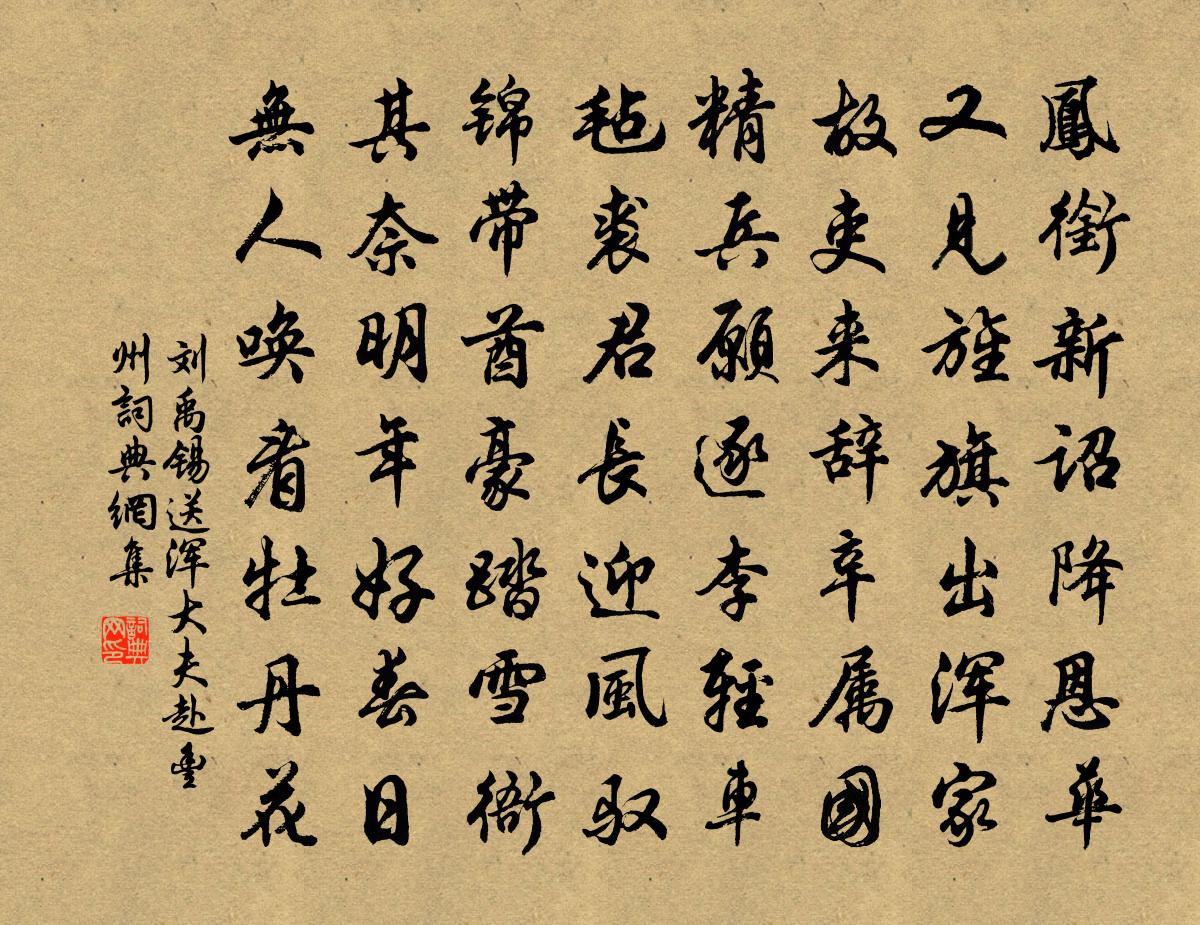 鳳銜新詔降恩華
又見旌旗出浑家
故吏来辞辛属國
精兵願逐李輕車
毡裘君長迎風驭
锦带酋豪踏雪衙
其奈明年好春日
無人唤看牡丹花
刘禹锡送浑大夫赴豊
州詞典網集
詞典
网印